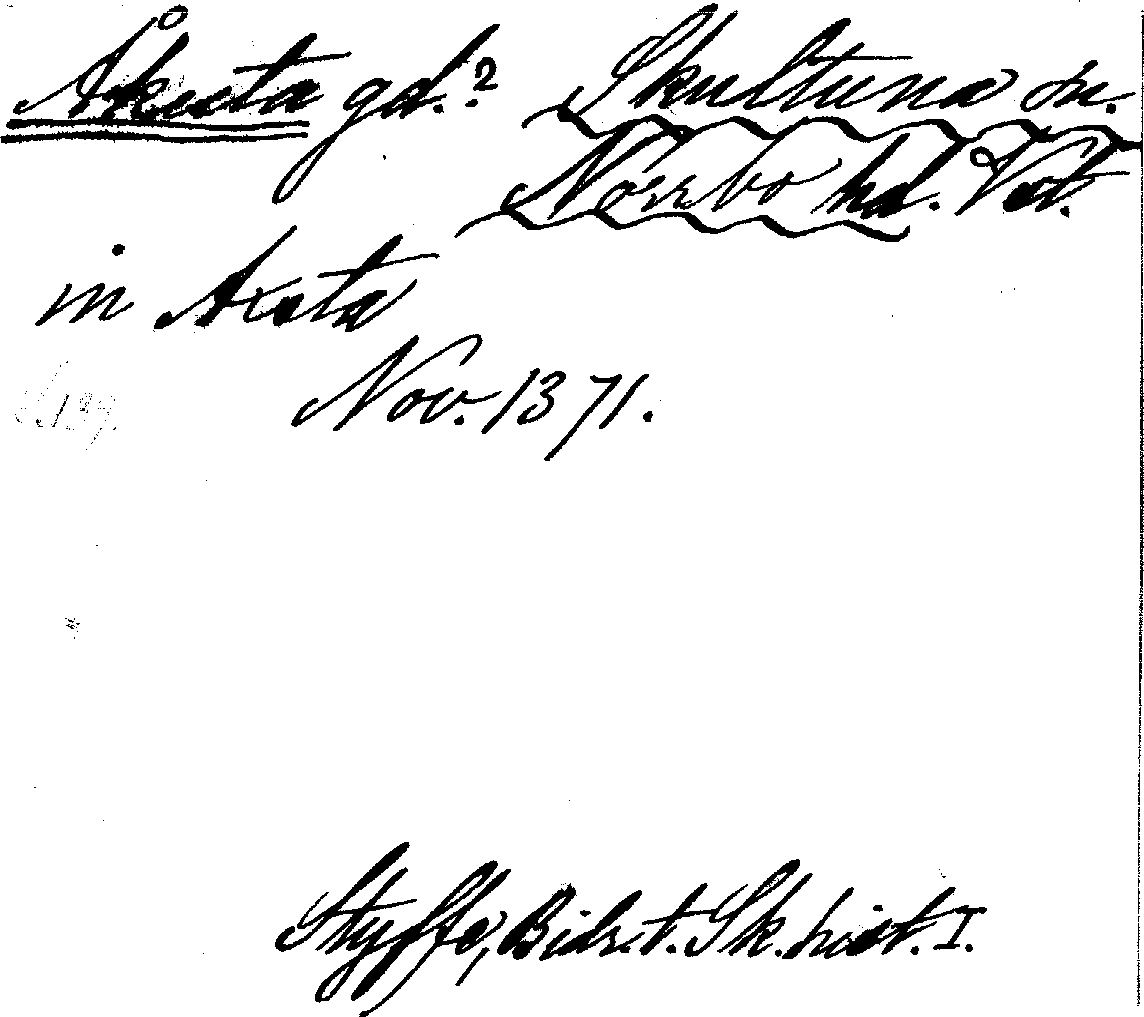 Åkesta gd.? Skultuna sn.
Norrbo hd. Vstm.
in Axsta
Nov. 1371.
S. 139.
Styffe, Bidr. t. Sk. hist. I.